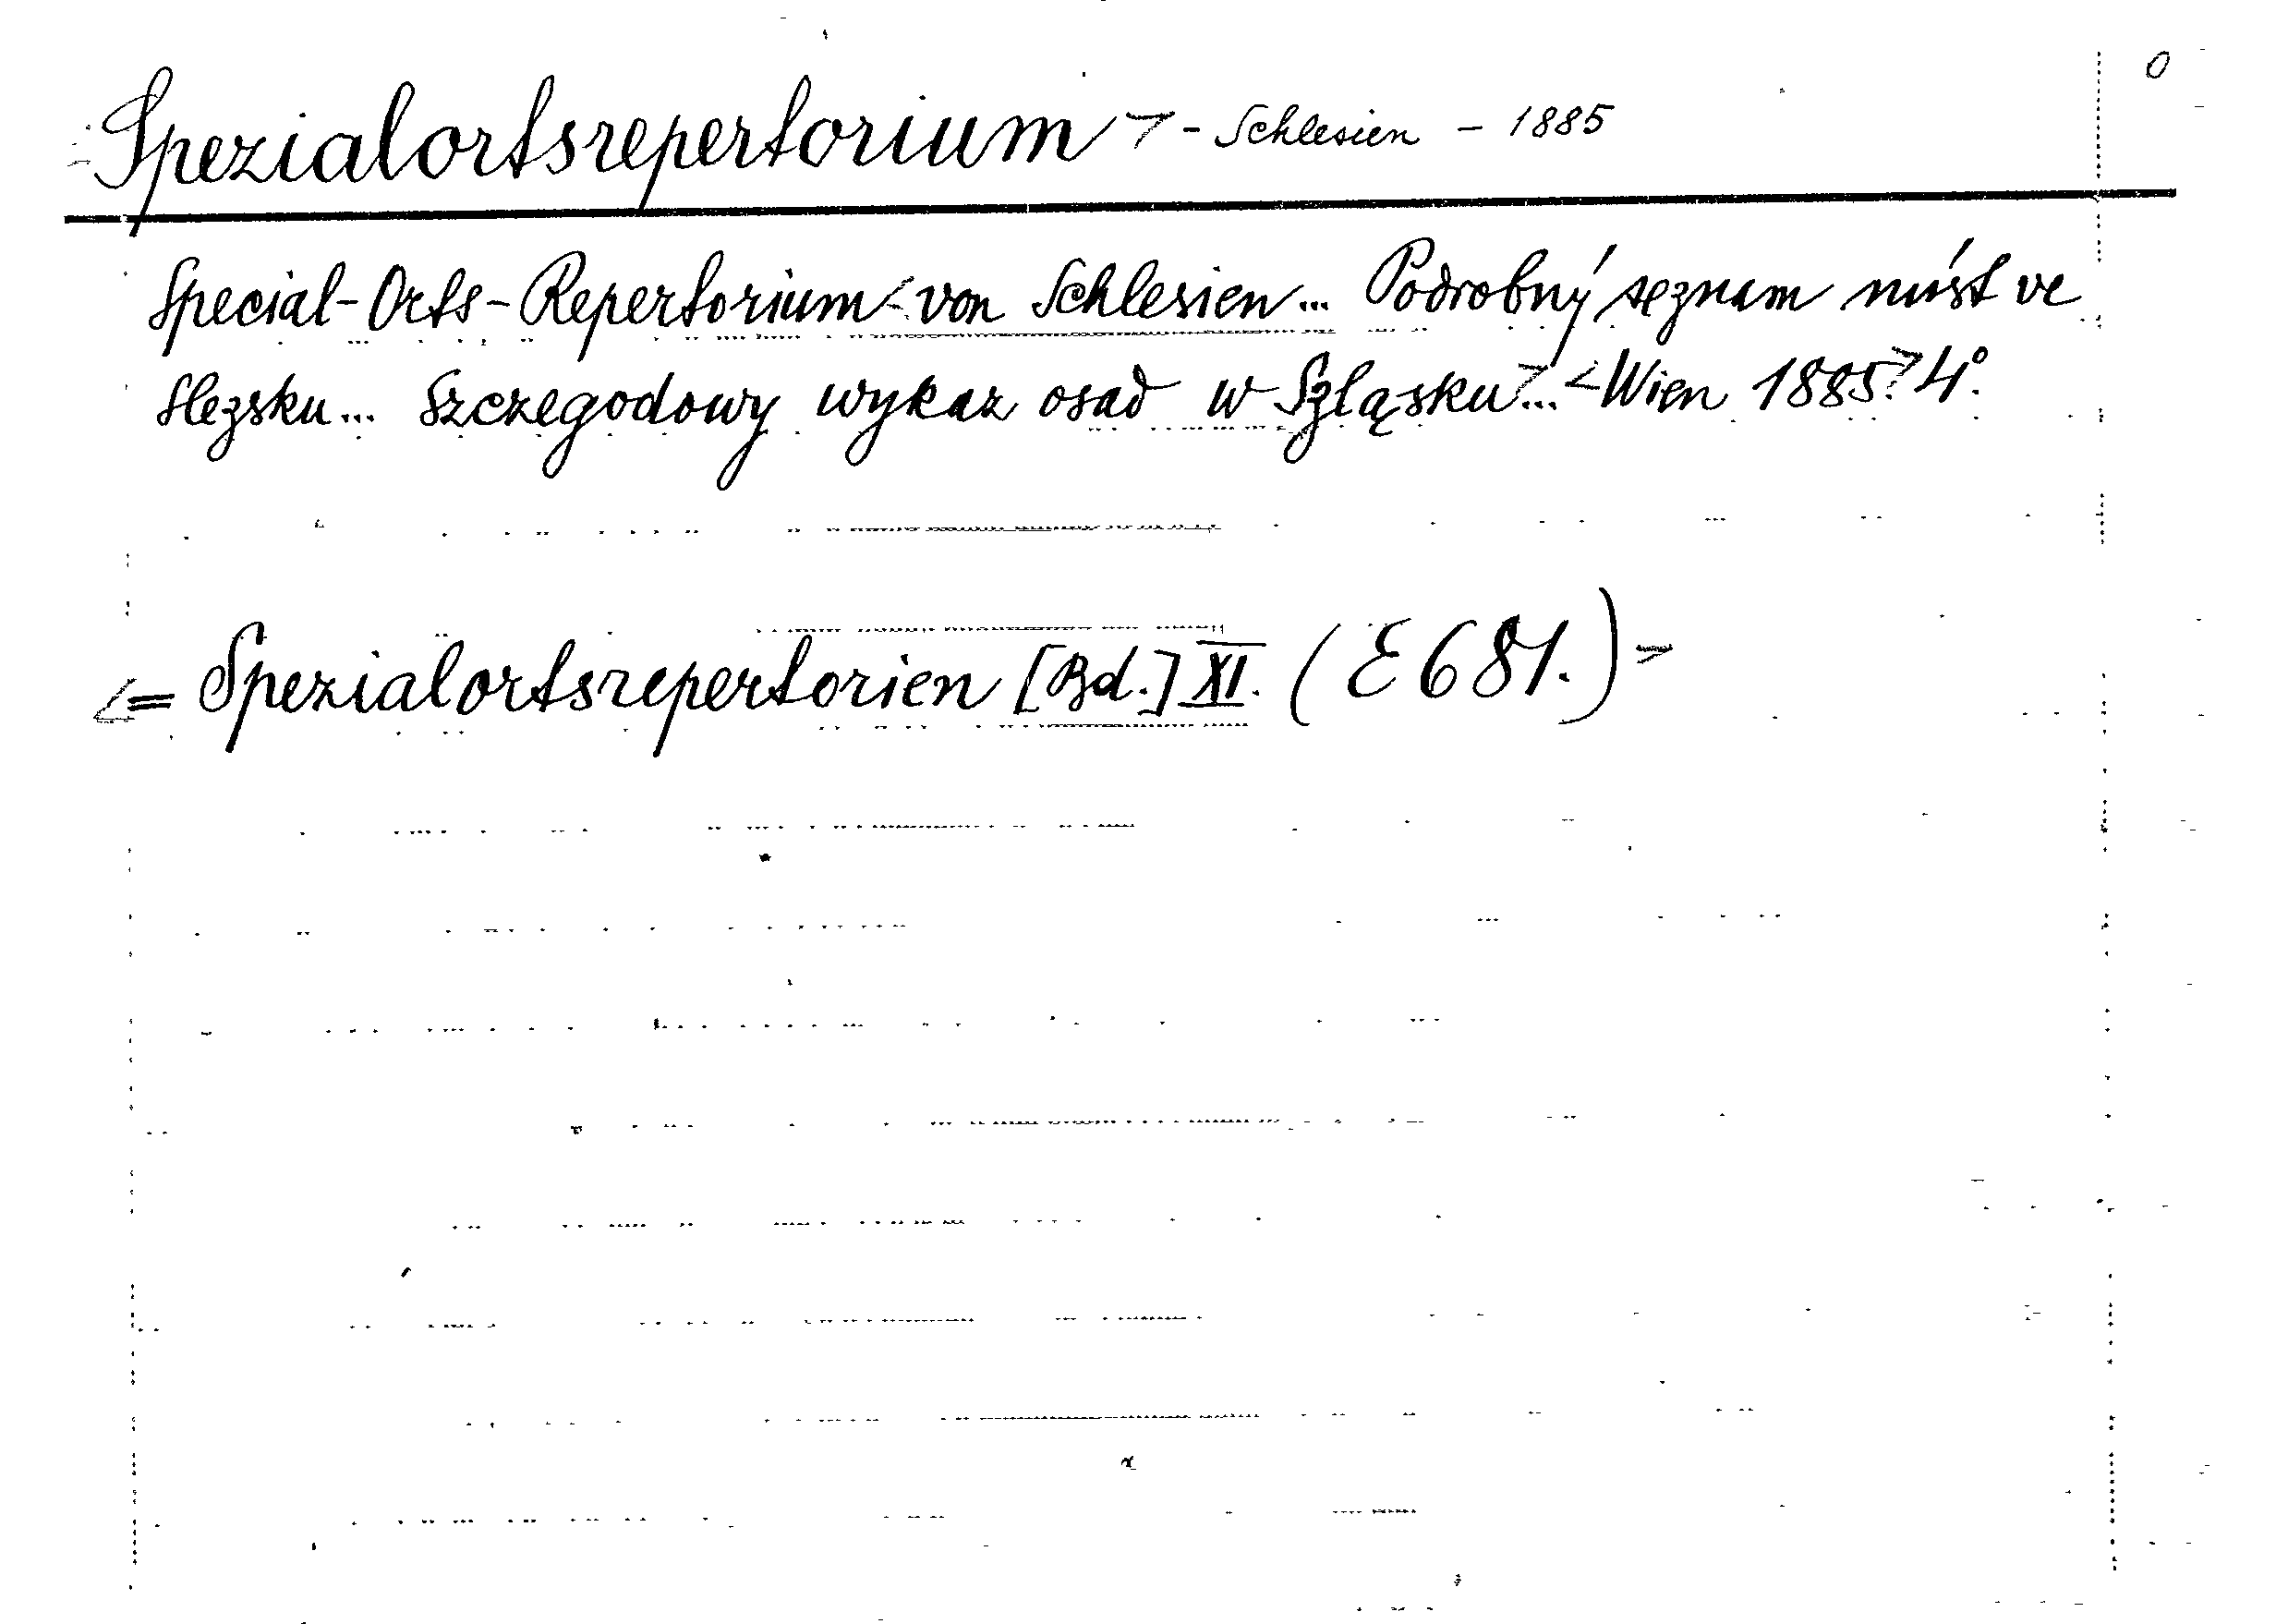 Spezialortsrepertorium > - Schlesien - 1885
0
Special-Orts-Repertorium < von Schlesien... Podrobný seznam míst ve
Slezsku... Szczegodowy wykaz osad w Szląsku>... <Wien 1885.> 4°.
<= Spezialortsrepertorien [Bd.] XI. (E 681.) >